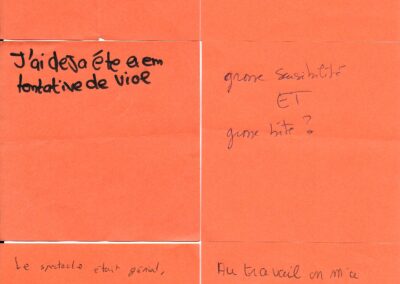 J'ai deja été a em
tentative de viol
grosse sensibilité
ET
grosse bite ?
Le spectacle était génial,
Au travail on m'a